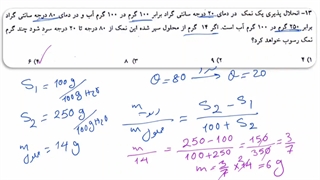 ۱۳- انحلال پذیری یک نمک در دمای ۲۰ درجه سانتی گراد برابر ۱۰۰ گرم در ۱۰۰ گرم آب و در دمای ۸۰ درجه سانتی گراد
برابر ۲۵۰ گرم در ۱۰۰ گرم آب است. اگر ۱۴ گرم از محلول سیر شده این نمک از ۸۰ درجه تا ۲۰ درجه سرد شود چند گرم
نمک رسوب خواهد کرد؟
۱) ۴ ۲) ۹ ۳) ۸ ۴) ۶
S₁ = 100g/100gH₂O
θ = 80 → θ = 20
S₂ = 250g/100gH₂O
m رسوب / m محلول = S₂ - S₁ / 100 + S₂
m محلول = 14 g
m/14 = 250-100/100+250 = 150/350 = 3/7
m = 3/7 × 14 = 6 g